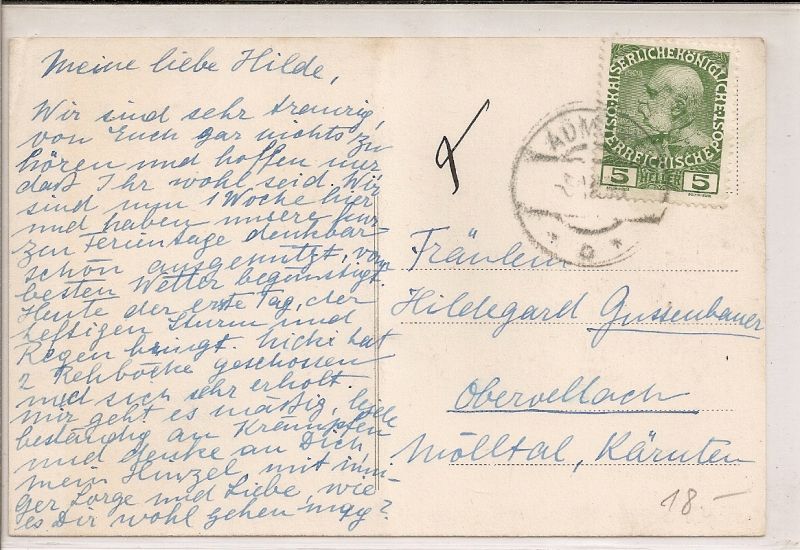 Meine liebe Hilde,
Wir sind sehr traurig,
von Euch gar nichts zu
hören und hoffen nur
daß Ihr wohl seid. Wir
sind nun 1 Woche hier
und haben unsere kur-
zen Ferientage denkbar
schön ausgenutzt, vom
besten Wetter begünstigt.
Heute der erste Tag, der
heftigen Sturm und
Regen bringt. Nicki hat
2 Rehböcke geschossen
und sich sehr erholt.
Mir geht es mäßig, leide
beständig an Krämpfen
und denke an Dich,
mein Hunzel, mit inni-
ger Sorge und Liebe, wie
es Dir wohl gehen mag?
KAISERLICHE KÖNIGLICHE
ÖSTERREICHISCHE POST
5 HELLER 5
AUM
Fräulein
Hildegard Gussenbauer
Obervellach
Mölltal, Kärnten
18-